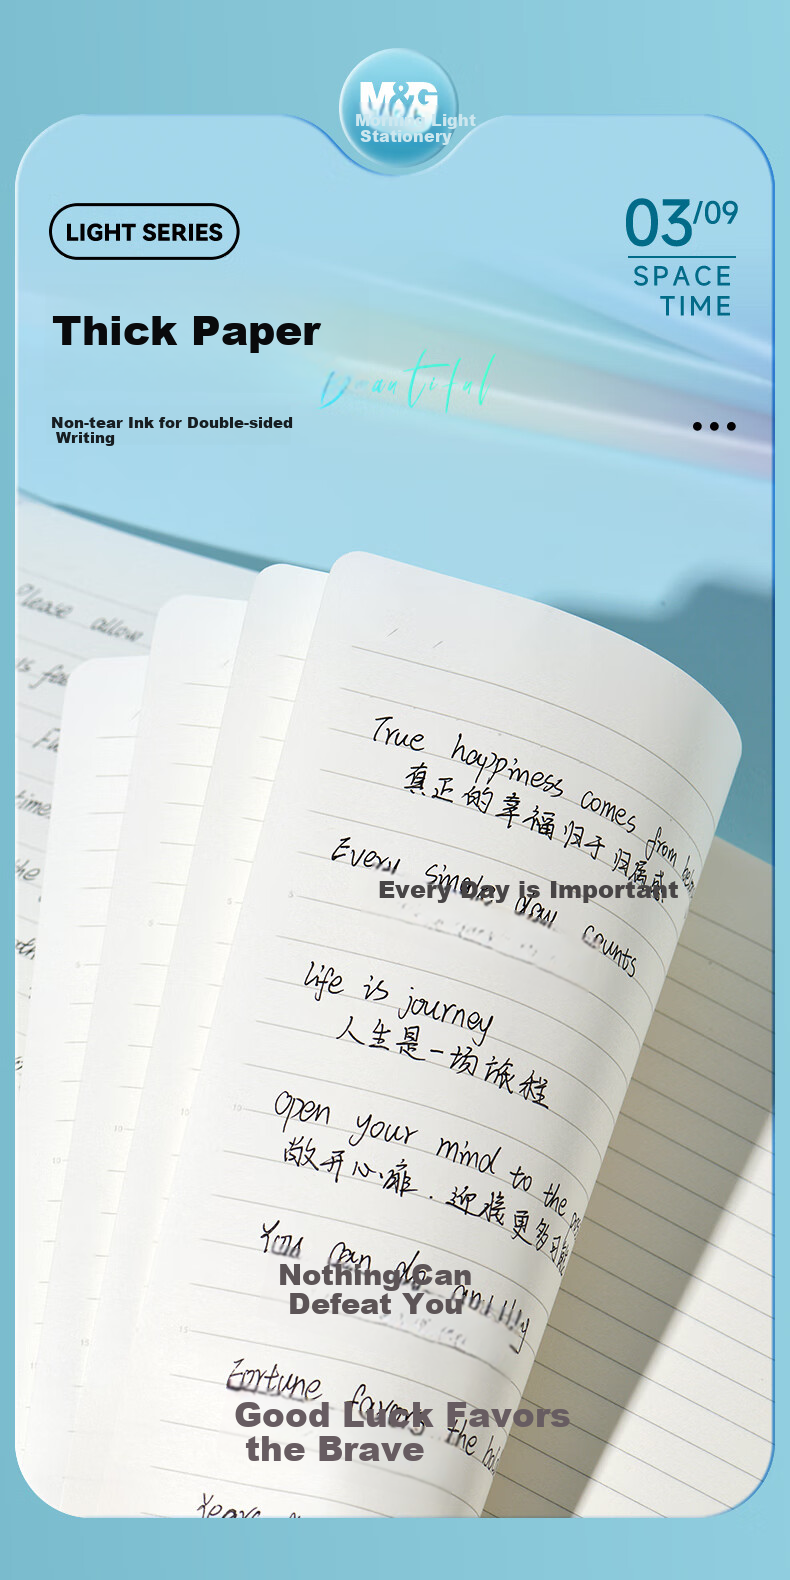 M&G
Morning Light
Stationery
LIGHT SERIES
03/09
SPACE
TIME
Thick Paper
Beautiful
Non-tear Ink for Double-sided
Writing
Please allow
is
time
the
True happiness comes from
真正的幸福归于归属感
Every single day counts
Every Day is Important
life is journey
人生是一场旅程
open your mind to the
敞开心扉.迎接更多可能
You can do
Nothing Can
Defeat You
Fortune favors the
Good Luck Favors
the Brave
Years